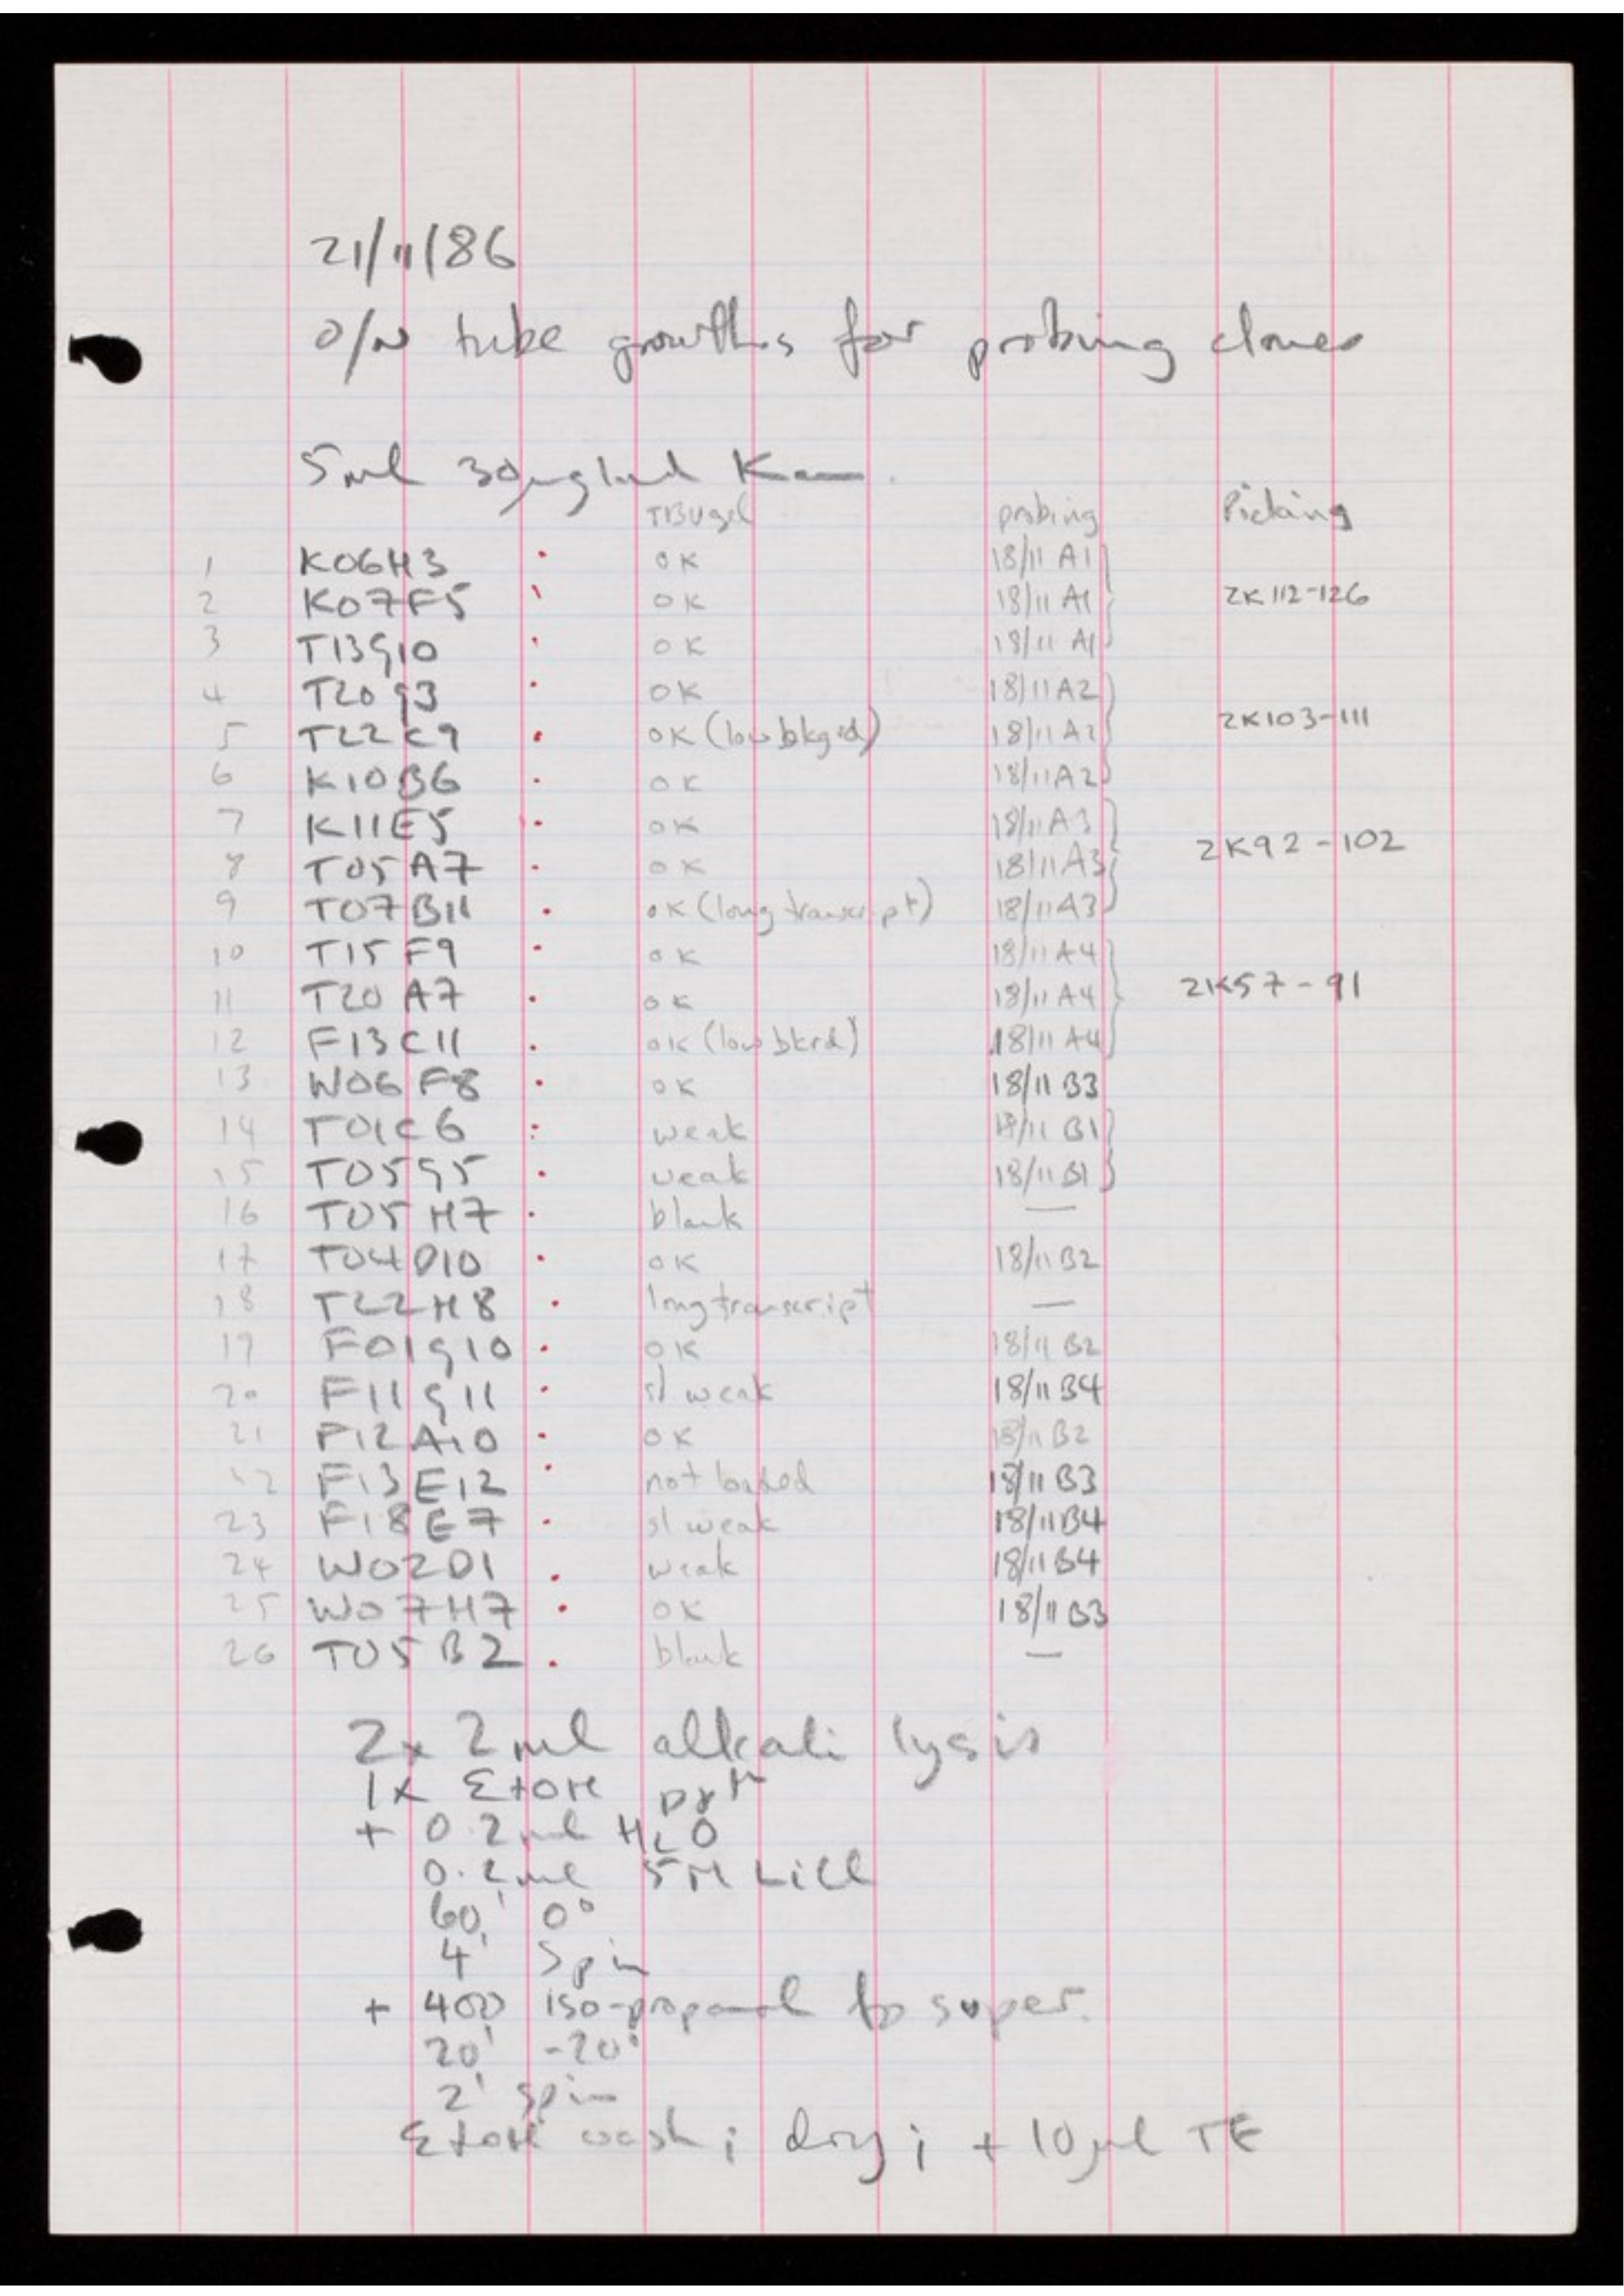 21/11/86
o/N tube growths for probing clones
5ml 30µg/ml Kan.
TBU gel probing Picking
1 K06H3 OK 18/11 A1
2 K07F5 OK 18/11 A1 ZK112-126
3 T13G10 OK 18/11 A1
4 T20G3 OK 18/11 A2
5 T22C9 OK (low bkgrd) 18/11 A2 ZK103-111
6 K10B6 OK 18/11 A2
7 K11E5 OK 18/11 A3
8 T05A7 OK 18/11 A3 ZK92-102
9 T07B11 OK (long transcript) 18/11 A3
10 T15F9 OK 18/11 A4
11 T20A7 OK 18/11 A4 ZK57-91
12 F13C11 OK (low bkrd) 18/11 A4
13 W06F8 OK 18/11 B3
14 T01C6 weak 18/11 B1
15 T05G5 weak 18/11 B1
16 T05H7 blank —
17 T04D10 OK 18/11 B2
18 T22H8 long transcript —
19 F01G10 OK 18/11 B2
20 F11G11 sl weak 18/11 B4
21 F12A10 OK 18/11 B2
22 F13E12 not loaded 18/11 B3
23 F18E7 sl weak 18/11 B4
24 W02D1 weak 18/11 B4
25 W07H7 OK 18/11 B3
26 T05B2 blank —
2x 2ml alkali lysis
1x EtOH
+ 0.2ml H2O
0.2ml 5M LiCl
60' 0°
4' spin
+ 400 iso-propanol to super.
20' -20°
2' spin
EtOH wash; dry; + 10µl TE